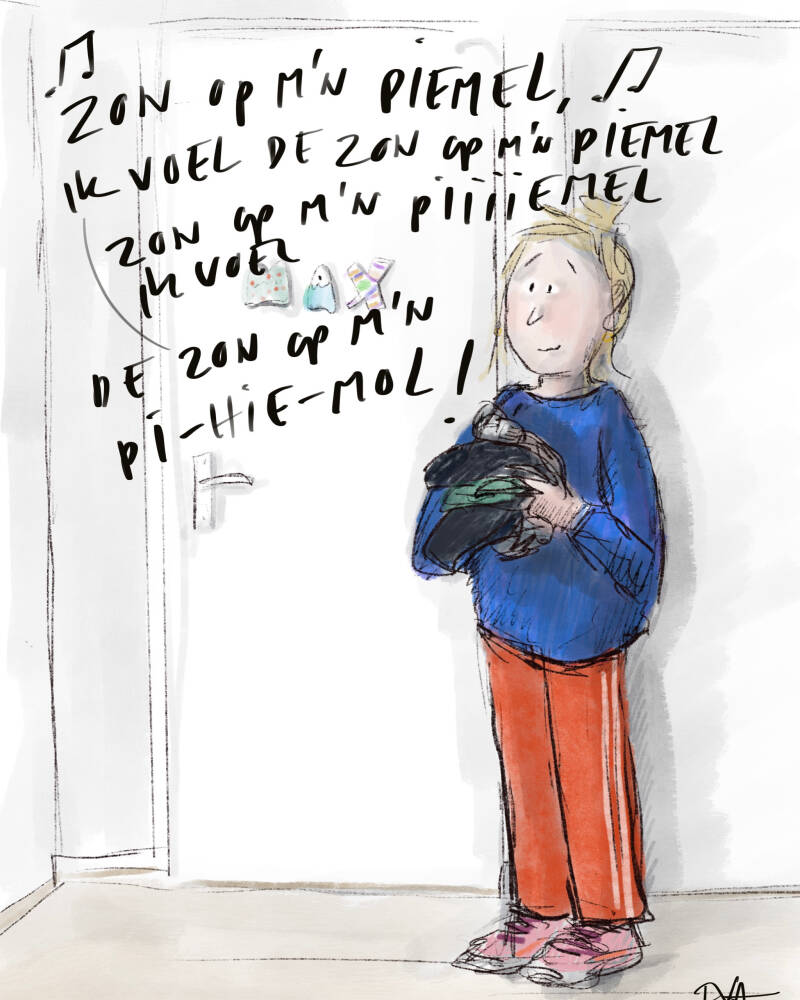 ZON OP M'N PIEMEL,
IK VOEL DE ZON OP M'N PIEMEL
ZON OP M'N PIIIIIEMEL
IK VOEL
MAX
DE ZON OP M'N
PI-HIE-MOL!